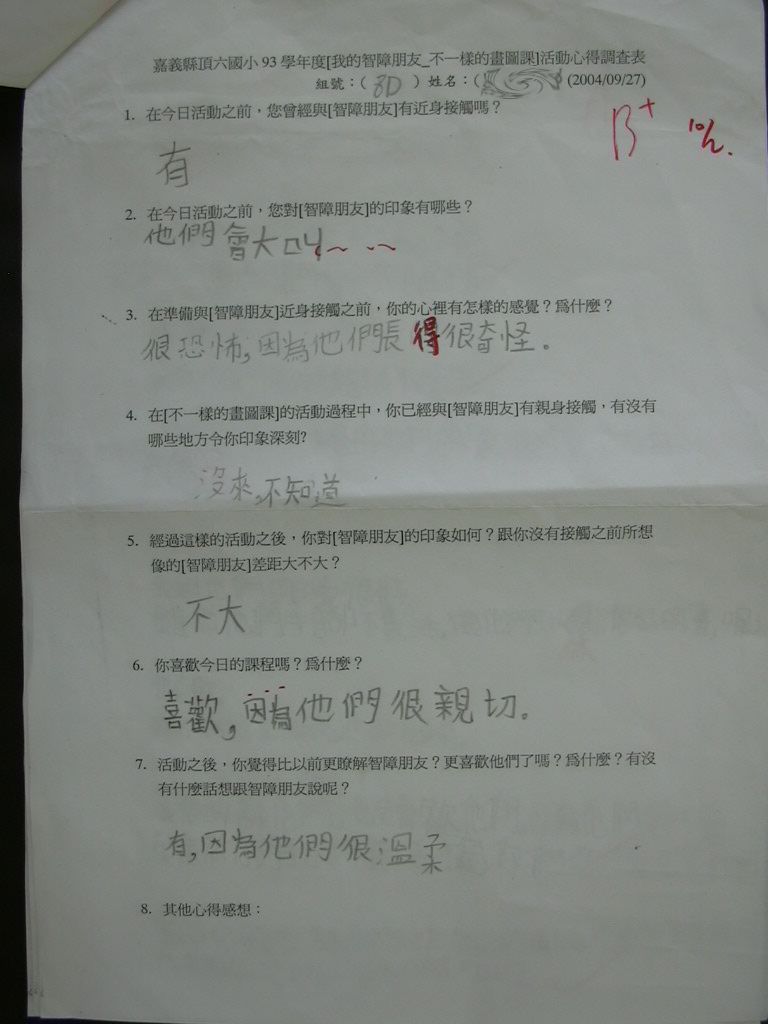 嘉義縣頂六國小93學年度[我的智障朋友_不一樣的畫圖課]活動心得調查表
組號：( 8D ) 姓名：( (2004/09/27)
B+ 10/2.
1. 在今日活動之前，您曾經與[智障朋友]有近身接觸嗎？
有
2. 在今日活動之前，您對[智障朋友]的印象有哪些？
他們會大叫
3. 在準備與[智障朋友]近身接觸之前，你的心裡有怎樣的感覺？為什麼？
很恐怖，因為他們長得很奇怪。
4. 在[不一樣的畫圖課]的活動過程中，你已經與[智障朋友]有親身接觸，有沒有
哪些地方令你印象深刻?
沒來，不知道
5. 經過這樣的活動之後，你對[智障朋友]的印象如何？跟你沒有接觸之前所想
像的[智障朋友]差距大不大？
不大
6. 你喜歡今日的課程嗎？為什麼？
喜歡，因為他們很親切。
7. 活動之後，你覺得比以前更瞭解智障朋友？更喜歡他們了嗎？為什麼？有沒
有什麼話想跟智障朋友說呢？
有，因為他們很溫柔
8. 其他心得感想：